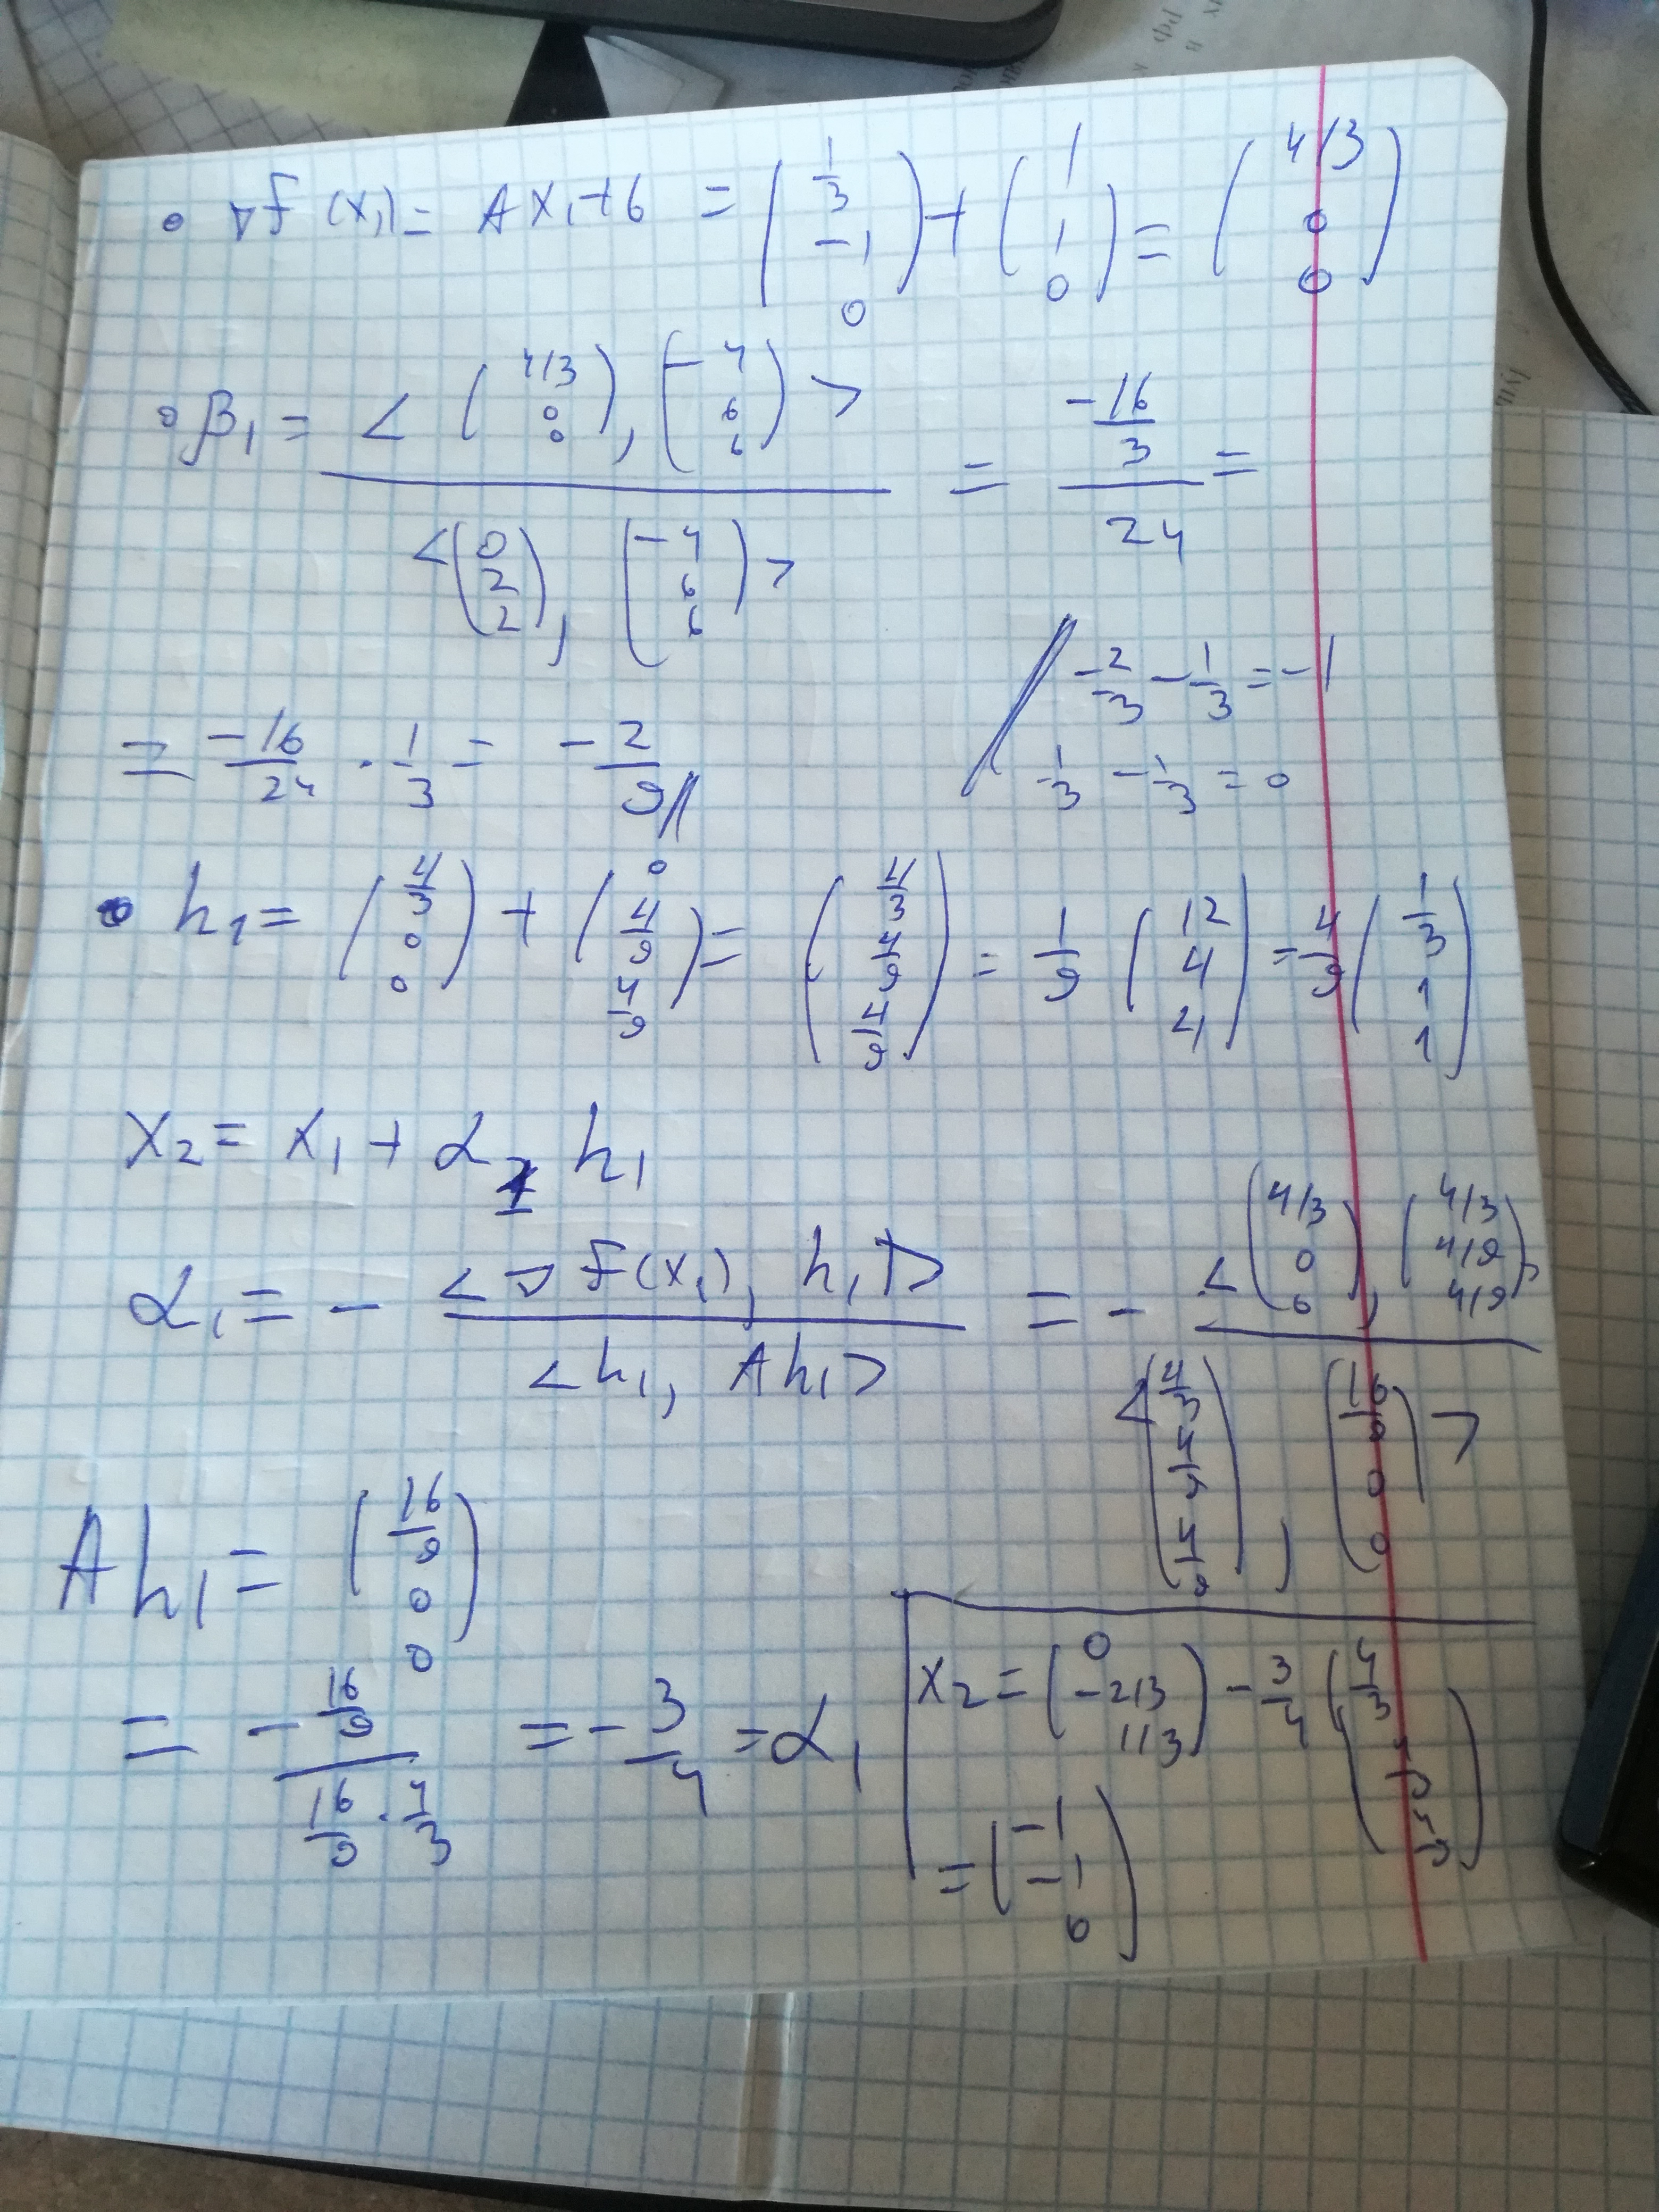 • ∇f(x₁) = Ax₁+b = (1/3 -1 0) + (1 1 0) = (4/3 0 0)
• β₁ = <(4/3 0 0), (-4 6 6)> / <(0 2 2), (-4 6 6)> = (-16/3) / 24 =
-2/3 - 1/3 = -1
= -16/24 · 1/3 = -2/9
1/3 - 1/3 = 0
• h₁ = (4/3 0 0) + (0 4/9 4/9) = (4/3 4/9 4/9) = 1/9 (12 4 4) = 4/9 (1/3 1 1)
x₂ = x₁ + α₁ h₁
α₁ = - <∇f(x₁), h₁> / <h₁, Ah₁> = - <(4/3 0 0), (4/3 4/9 4/9)> / <(4/3 4/9 4/9), (16/9 0 0)>
Ah₁ = (16/9 0 0)
= - (16/9) / (16/9 · 4/3) = -3/4 = α₁
x₂ = (0 -2/3 1/3) - 3/4 (4/3 4/9 4/9)
= (-1 -1 0)